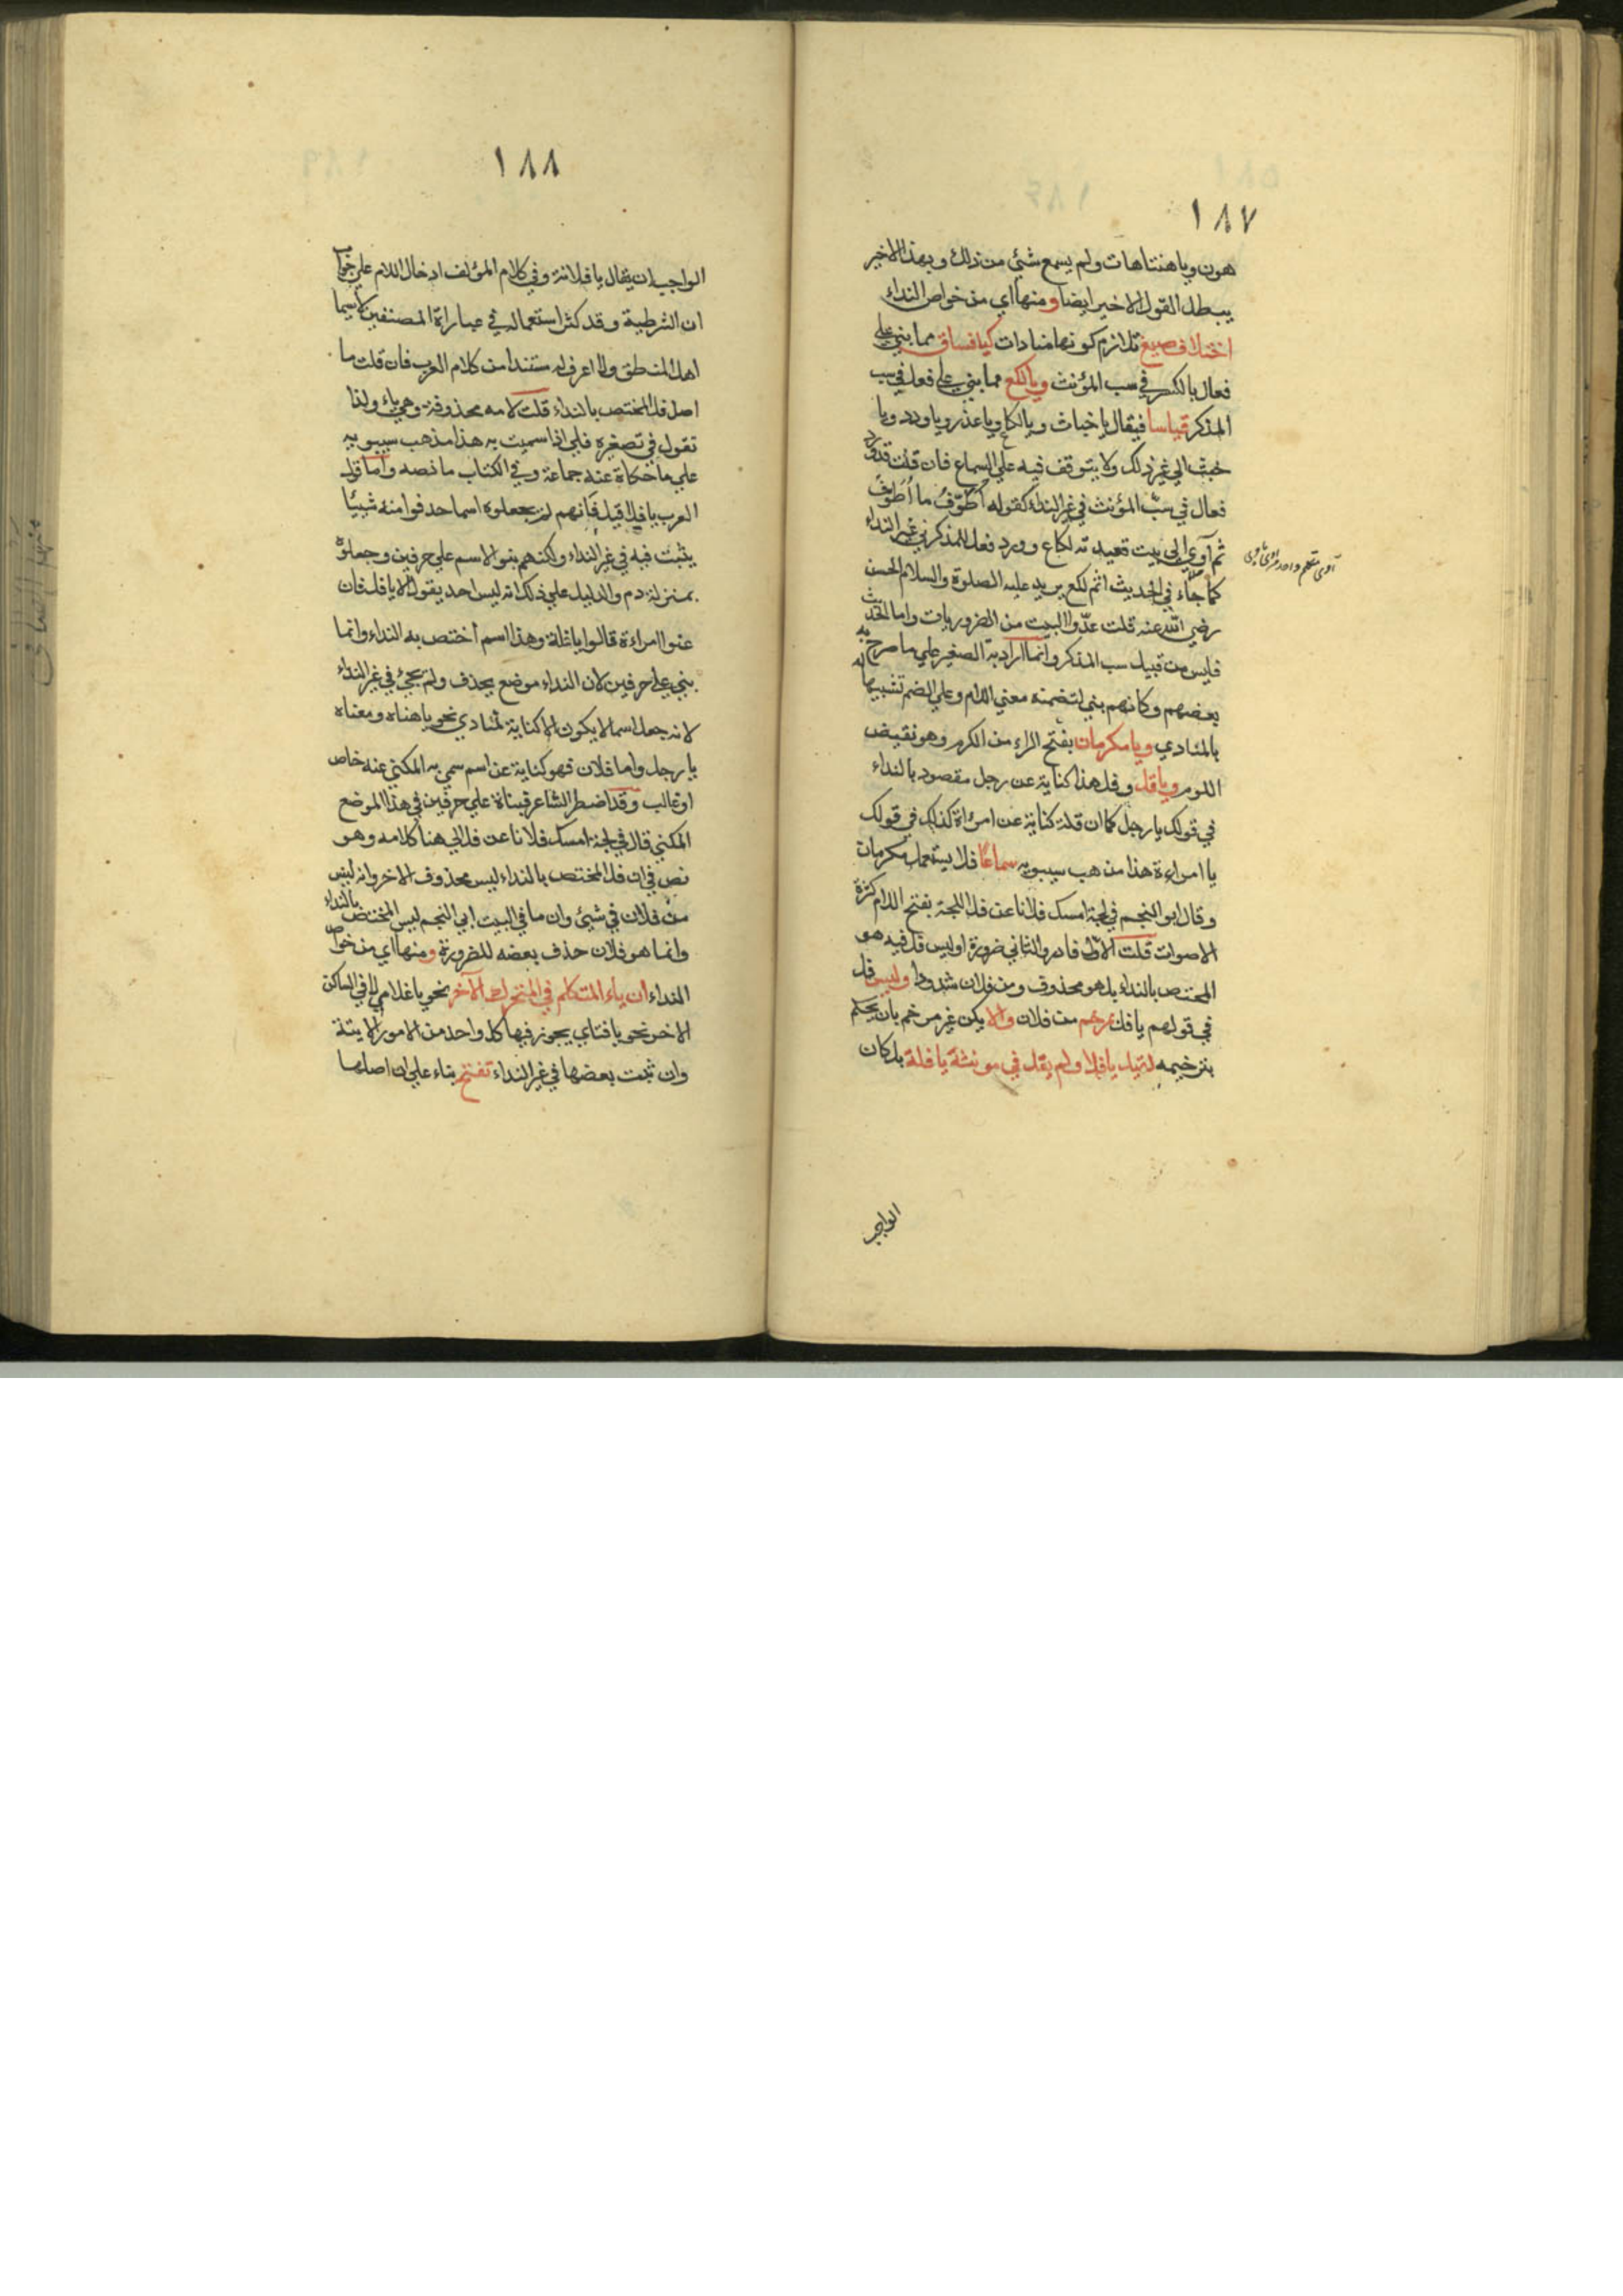 ١٨٧
هون وياهنتاهات ولم يسمع شيئ من ذلك وبهذا الاخير
يبطل القول الاخير ايضا ومنها اي من خواص النداء
اختلاف صيغ تلازم كونها منادات كيافساق مما بني علي
فعال بالكسر في سب المؤنث ويالكع مما بني علي فعل في سب
المذكر قياسا فيقال ياخباث ويالكاع وياغدر وياودد ويا
خبث الي غير ذلك ولا يتوقف فيه علي السماع فان قلت قد ورد
فعال في سبّ المؤنث في غير النداء كقوله اُطَوّفُ ما اُطَوّفُ
ثم آوي الي بيت قعيدته لكاع وورد فعل للمذكر في غير النداء
كما جاء في الحديث اثم لكع يريد عليه الصلوة والسلام الحسن
رضي الله عنه قلت عدّوا البيت من الضروريات واما الحديث
فليس من قبيل سب المذكر وانما اراد به الصغير علي ما صرح به
بعضهم وكانهم بني لتضمنه معني اللام وعلي الضم تشبيها له
بالمنادي ويامكرمان بفتح الراء من الكرم وهو نقيض
اللوم ويافل وفل هذا كناية عن رجل مقصود بالنداء
في قولك يا رجل كما ان فلة كناية عن امرأة كذلك في قولك
يا امراءة هذا مذهب سيبويه سماعًا فلا يستعمل مكرمان
وقال ابو النجم في لجة امسك فلانا عن فل اللجة بفتح اللام كثرة
الاصوات قلت الاوّل نادر والثاني ضرورة اوليس فل فيه هو
المختص بالنداء بل هو محذوف من فلان شذوذا وليس فل
في قولهم يا فل مرخم من فلان والا يكن غير مرخم بان يحكم
بترخيمه لقيل يافلا ولم يقل في مونثه يا فلة بل كان
آوى متكلم واحد
الواجب
١٨٨
الواجب ان يقال يا فلانة وفي كلام المؤلف ادخال اللام علي جواب
ان الشرطية وقد كثر استعماله في عباراة المصنفين لاسيما
اهل المنطق ولا اعرف له مستندا من كلام العرب فان قلت ما
اصل فل المختص بالنداء قلت لامه محذوفة وهي ياء ولذا
تقول في تصغيره فلي اذا سميت به هذا مذهب سيبويه
علي ما حكاة عنه جماعة وفي الكتاب ما نصه واما قول
العرب يافل اقبل فانهم لم يجعلوه اسما حذفوا منه شيئا
يثبت فيه في غير النداء ولكنهم بنو الاسم علي حرفين وجعلوه
بمنزلة دم والدليل علي ذلك انه ليس احد يقول الا يافل فان
عنوا امراءة قالوا يافلة وهذا اسم أختص به النداء وانما
بني علي حرفين لان النداء موضع يحذف ولم يجئ في غير النداء
لانه جعل اسما لا يكون الا كناية لمنادي نحو ياهناه ومعناه
يا رجل واما فلان فهو كناية عن اسم سمي به المكني عنه خاص
او غالب وقد اضطر الشاعر فبناة علي حرفين في هذا الموضع
المكني قال في لجة امسك فلانا عن فل الي هنا كلامه وهو
نص في ان فل المختص بالنداء ليس محذوف الاخر وانه ليس
من فلان في شيئ وان ما في البيت ابي النجم ليس المختص بالنداء
وانما هو فلان حذف بعضه للضرورة ومنها اي من خواص
النداء ان ياء المتكلم في المتحرك الآخر نحو يا غلامي لا في الساكن
الاخر نحو يا فتاي يجوز فيها كل واحد من الامور الايتة
وان ثبت بعضها في غير النداء تفتح بناء علي ان اصلها